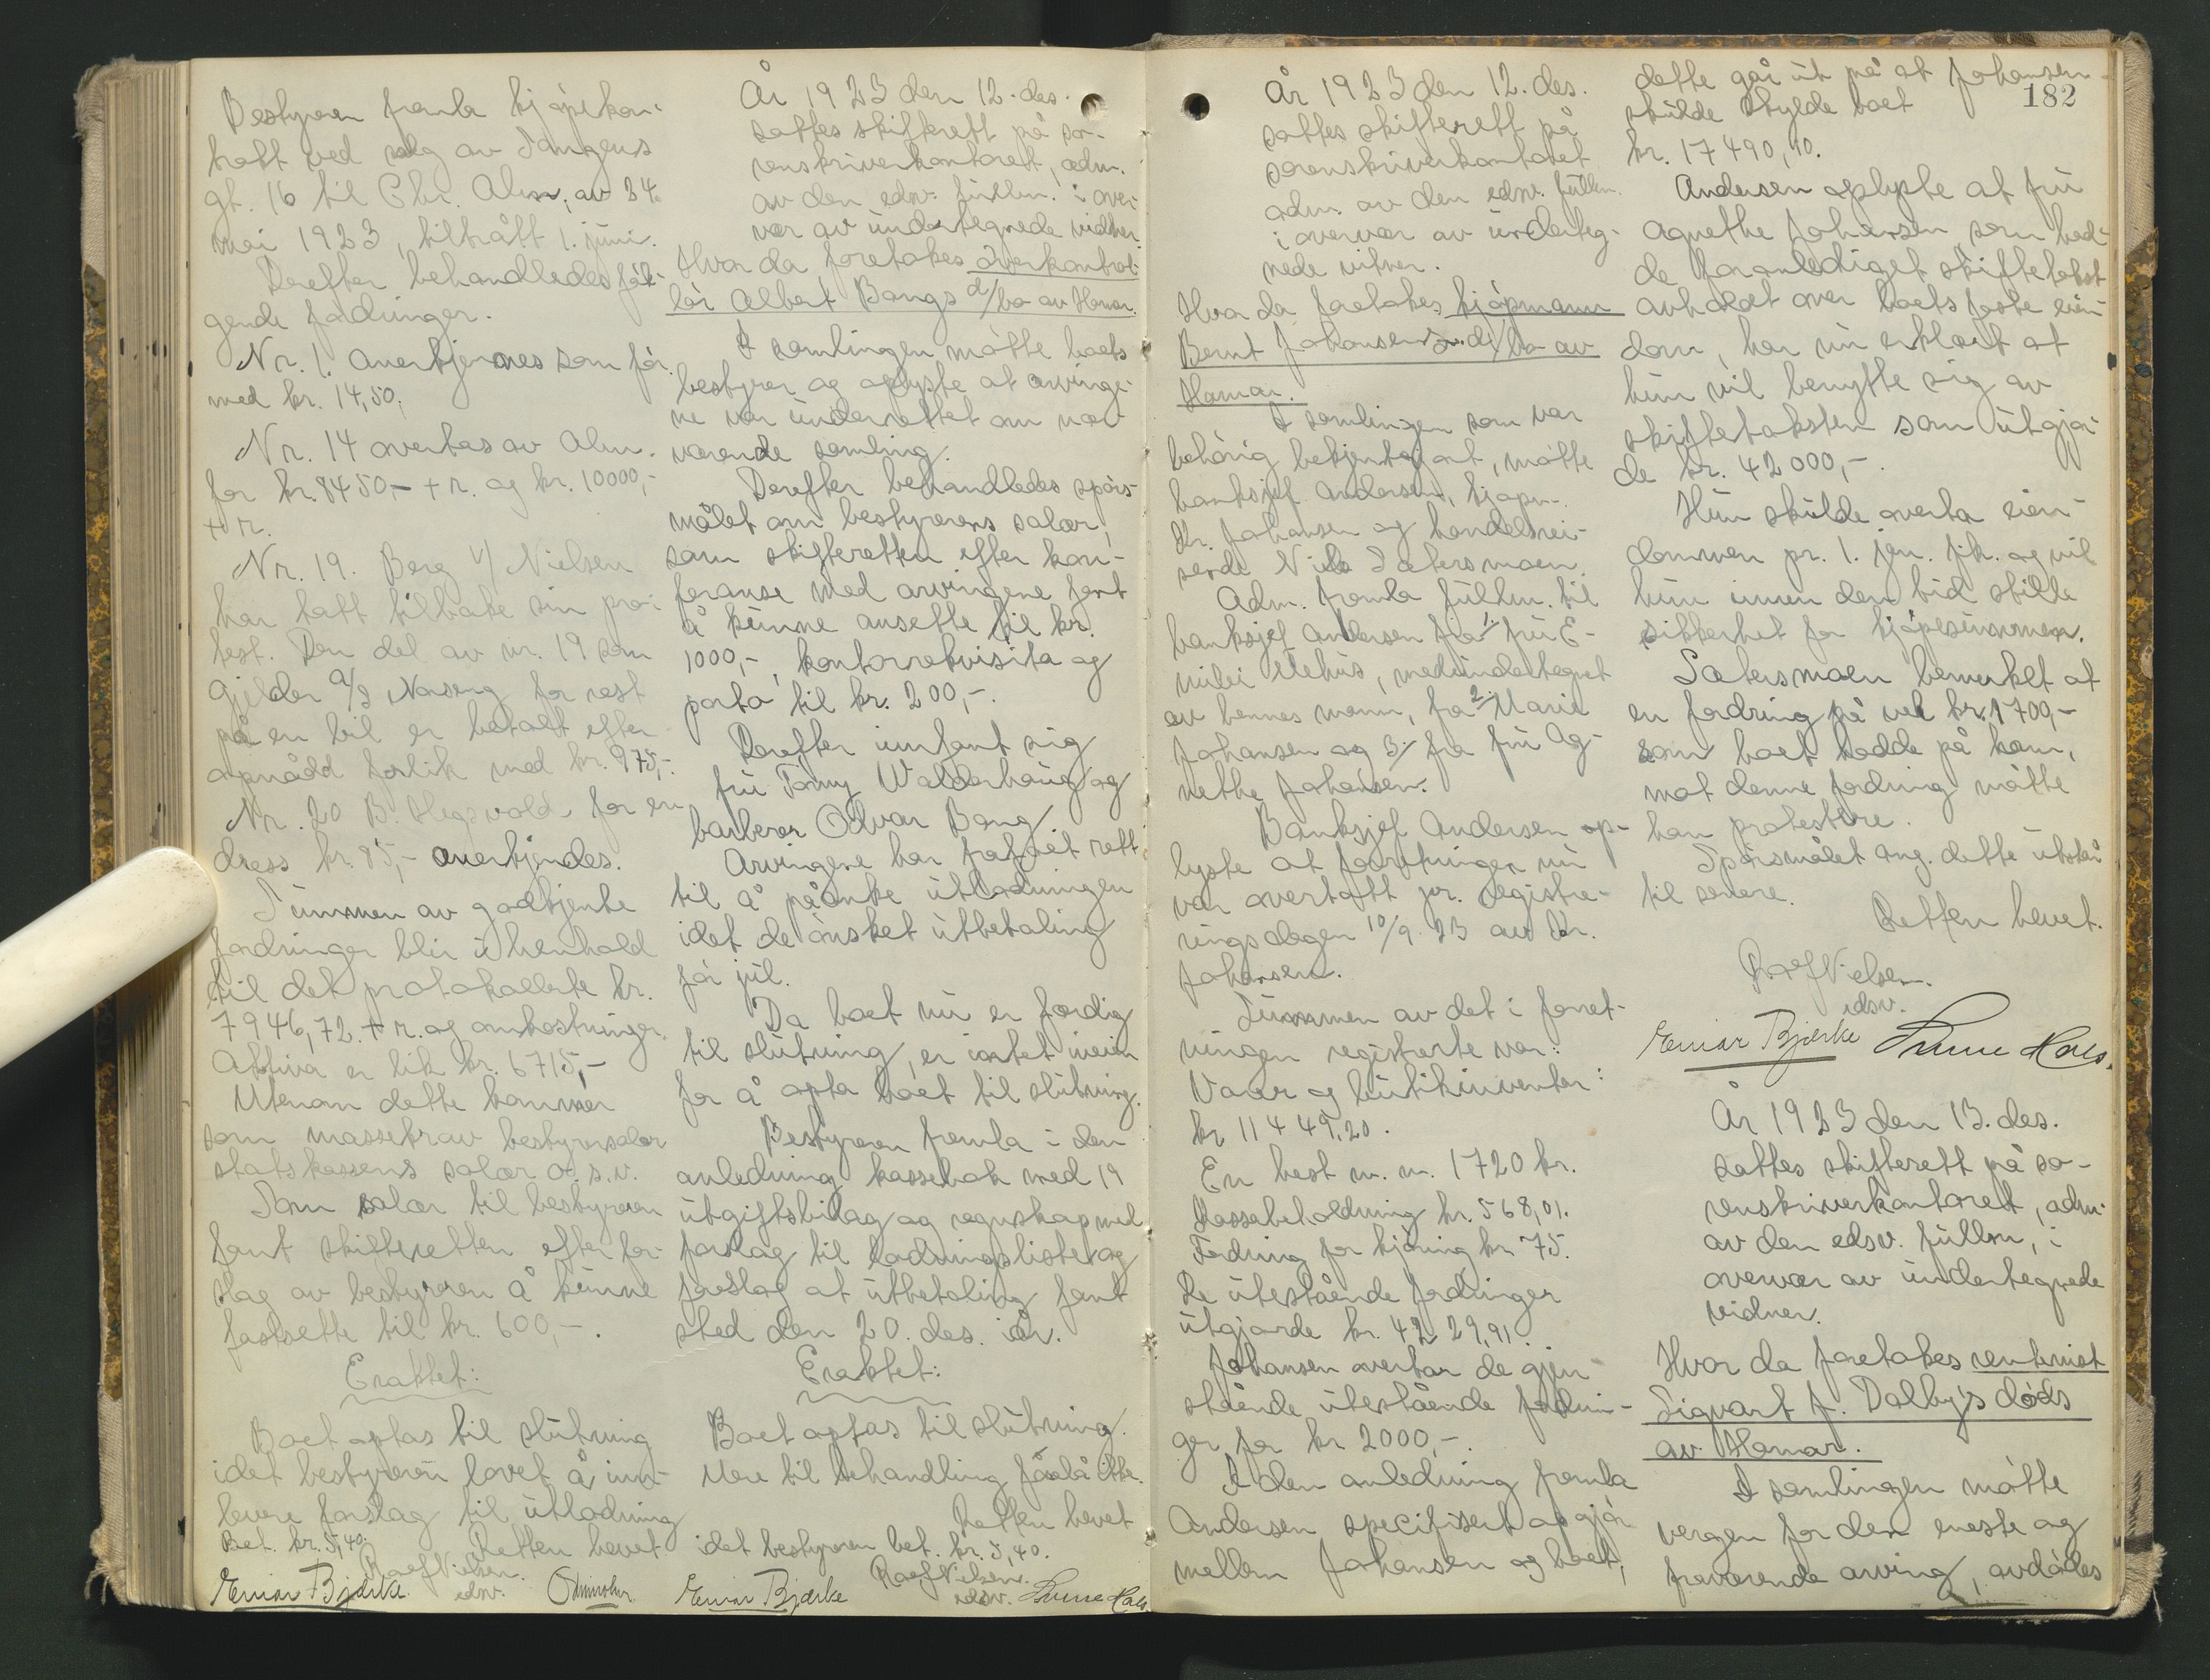 Bestyreren fremla kjøpekon-
trakt ved salg av Vangens
gt. 16 til Chr. Alm, av 24.
mai 1923, tiltrått 1. juni.
Derefter behandledes føl-
gende fordringer.
Nr. 1. anerkjennes som før
med kr. 14,50.
Nr. 14 overtas av Alm.
for kr. 8450,- + r. og kr. 10000,-
+ r.
Nr. 19. Berg v/ Nielsen
har tatt tilbake sin pro-
test. Den del av nr. 19 som
gjelder a/s Norseng for rest
på en bil er betalt efter
opnådd forlik med kr. 975,-.
Nr. 20 B. Hegsvold for en
dress kr. 85,- anerkjendes.
Summen av godkjente
fordringer blir i henhold
til det protokollerte kr.
7946,72. + r. og omkostninger.
Aktiva er lik kr. 6715,-
Utenom dette kommer
som massekrav bestyrersalær
statskassens salær o.s.v.
Som salær til bestyreren
fant skifteretten efter for-
slag av bestyreren å kunne
fastsette til kr. 600,-.
Eraktet:
Boet optas til slutning
idet bestyreren lovet å inn-
levere forslag til utlodning
Bet. kr. 5,40. Retten hevet.
Roof Nielsen.
edsv.
Einar Bjørke
År 1923 den 12. des.
sattes skifterett på so-
renskriverkontoret, adm.
av den edsv. fullm. i over-
vær av undertegnede vidner.
Hvor da foretokes overkontrol-
lør Albert Bangs d/bo av Hamar.
I samlingen møtte boets
bestyrer og oplyste at arvinge-
ne var underrettet om nær-
værende samling.
Derefter behandledes spørs-
målet om bestyrerens salær,
som skifteretten efter kon-
feranse med arvingene fant
å kunne ansette til kr.
1000,-, kontorrekvisita og
porto til kr. 200,-.
Derefter innfant sig
fru Tomy Walderhaug og
barberer Odvar Bang.
Arvingene har frafalt rett
til å påanke utlodningen
idet de ønsket utbetaling
før jul.
Da boet nu er færdig
til slutning, er intet iveien
for å opta boet til slutning.
Bestyreren fremla i den
anledning kassebok med 19
utgiftsbilag og regnskap med
forslag til lodningsliste og
forslag at utbetaling fant
sted den 20. des. i år.
Eraktet:
Boet optas til slutning.
Mere til behandling forelå ikke.
Retten hevet
idet bestyreren bet. kr. 5,40.
Roof Nielsen.
edsv.
Einar Bjørke
182
År 1923 den 12. des.
sattes skifterett på
sorenskriverkontoret
adm. av den edsv. fullm.
i overvær av underteg-
nede vitner.
Hvor da foretokes kjøpmann
Bernt Johansens d/bo av
Hamar.
I samlingen som var
behørig bekjentgjort, møtte
banksjef Andersen, kjøpm.
Kr. Johansen og handelsrei-
sende Nils Sætersmoen.
Adm. fremla fullm. til
banksjef Andersen fra 1. fru E-
milie Utehus, medundertegnet
av hennes mann, fra 2. Marie
Johansen og 3/ fra fru Ag-
nethe Johansen.
Banksjef Andersen op-
lyste at forretningen nu
var overtatt pr. registre-
ringsdagen 10/9. 23 av Kr.
Johansen.
Summen av det i forret-
ningen registrerte var:
Varer og butikinventar:
kr. 11449,20.
En hest m. m. 1720 kr.
Kassebeholdning kr. 568,01.
Fordring for kjøring kr. 75.
De utestående fordringer
utgjorde kr. 4229,91.
Johansen overtar de gjen-
stående utestående fordrin-
ger for kr. 2000,-.
I den anledning fremla
Andersen specifisert opgjør
mellem Johansen og boet,
dette går ut på at Johansen
skulde skylde boet
kr. 17490,90.
Andersen oplyste at fru
Agnethe Johansen som had-
de foranlediget skiftetakst
avholdt over boets faste eien-
dom, har nu erklært at
hun vil benytte sig av
skiftetaksten som utgjor-
de kr. 42000,-.
Hun skulde overta eien-
dommen pr. 1. jan. fk. og vil
hun innen den tid stille
sikkerhet for kjøpesummen.
Sætersmoen bemerket at
en fordring på vel kr. 1700,-
som boet hadde på ham,
mot denne fordring måtte
han protestere.
Spørsmålet ang. dette utstår
til senere.
Retten hevet.
Roof Nielsen.
edsv.
Einar Bjørke
År 1923 den 13. des.
sattes skifterett på so-
renskriverkontoret, adm.
av den edsv. fullm, i
overvær av undertegnede
vidner.
Hvor da foretokes rentenist
Sigvart J. Dalby's døds
av Hamar.
I samlingen møtte
vergen for den eneste og
fraværende arving, avdødes